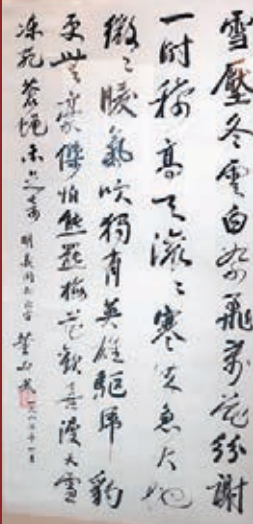 雪壓冬雲白絮飛萬花紛謝
一时稀高天滚々寒流急大地
微々暖氣吹獨有英雄驅虎豹
更无豪傑怕熊羆梅花歡喜漫天雪
凍死蒼蠅未足奇